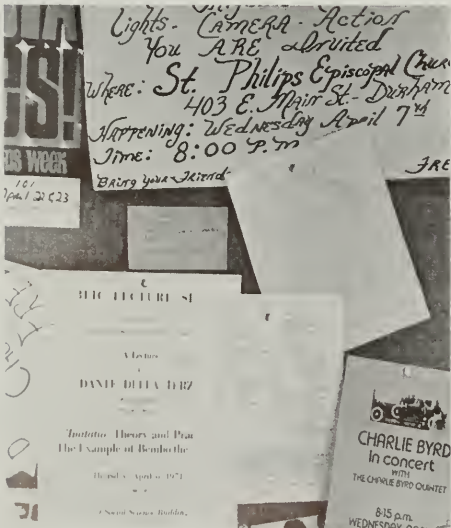 Lights - CAMERA - Action
You ARE Invited
WHERE: St. Philips Episcopal
403 E. Main St. - Durham
HAPPENING: Wednesday April 7
Time: 8:00 P.M
FRE
BRING YOUR Friend
S!
WEEK
101
April 22 & 23
LECTURE
A Lecture
DANTE DELLA TERZ
Imitatio: Theory and Prac
The Example of Bembo the
Thursday, April 1971
Social Science Building,
CHARLIE BYRD
in concert
WITH
THE CHARLIE BYRD QUINTET
8:15 p.m.
WEDNESDAY